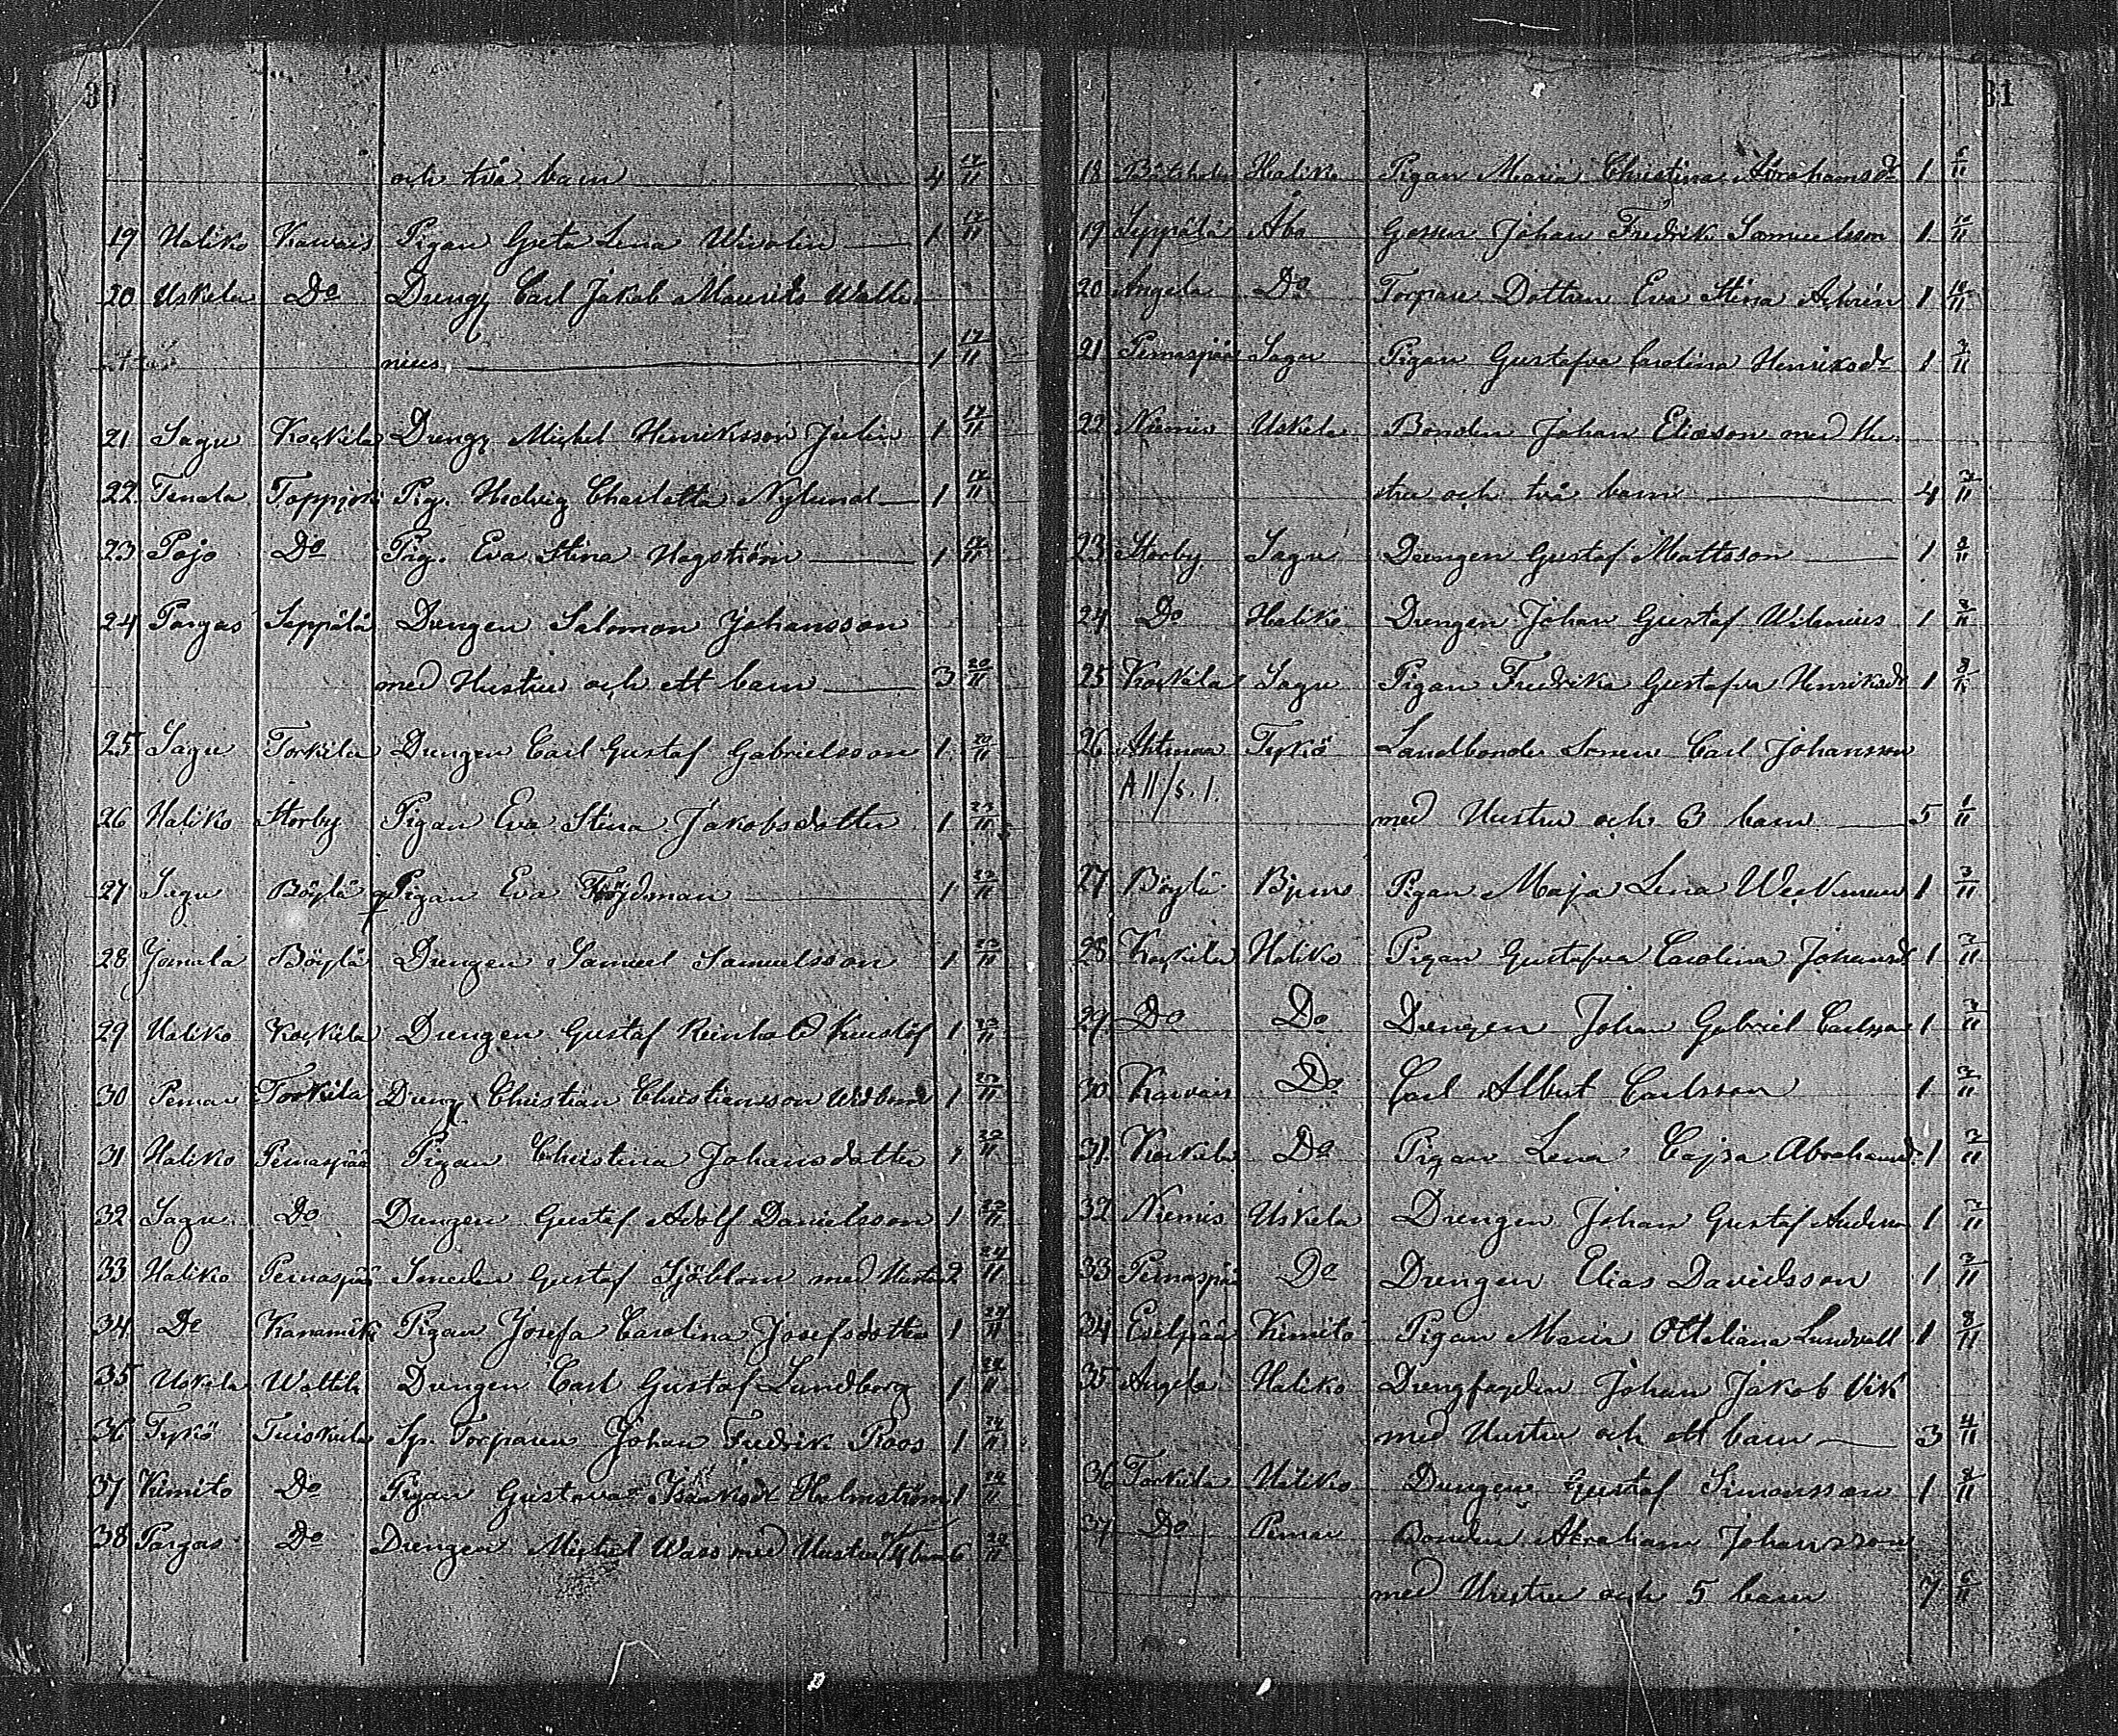 30
och två barn 4 17/11
19 Haliko Karvais Pigan Greta Lena Wivolin 1 17/11
20 Uskela Do Drengn Carl Jakob Maurits Walle
nius 1 17/11
21 Sagu Koskila Drengn Michel Henriksson Julin 1 17/11
22 Tenala Toppjoki Pig. Hedvig Charlotta Nylund 1 17/11
23 Pojo Do Pig. Eva Stina Hagström 1 17/11
24 Pargas Seppälä Drengen Salomon Johansson
med Hustru och ett barn 3 20/11
25 Sagu Torkila Drengen Carl Gustaf Gabrielsson 1 20/11
26 Haliko Storby Pigan Eva Stina Jakobsdotter 1 23/11
27 Sagu Böylä Pigan Eva Fröjdman 1 22/11
28 Jomala Böylä Drengen Samuel Samuelsson 1 23/11
29 Haliko Koskila Drengen Gustaf Reinhold 1 23/11
30 Pemar Torkila Dreng Christian Christiansson 1 23/11
31 Haliko Pernaspää Pigan Christina Johansdotter 1 22/11
32 Sagu Do Drengen Gustaf Adolf Danielsson 1 22/11
33 Haliko Pernaspää Smeden Gustaf Sjöblom med Hustru 2 24/11
34 Do Kanamäki Pigan Josefa Carolina Josefsdotter 1 24/11
35 Uskela Waltila Drengen Carl Gustaf Lundborg 1 24/11
36 Tykö Tuiskula Sp. Torparen Johan Fredrik Roos 1 24/11
37 Kimito Do Pigan Gustava Isaaksdr Holmström 1 24/11
38 Pargas Do Drengen Michel Wass med Hustru 4 barn 6 24/11
31
18 Båtsholm Haliko Pigan Maria Christina Abrahamsdr 1 5/11
19 Seppälä Åbo Gossen Johan Fredrik Samuelsson 1 10/11
20 Angela Do Torpare Dottren Eva Stina Achrén 1 10/11
21 Pernaspää Sagu Pigan Gustafva Carolina Henriksdr 1 3/11
22 Niemis Uskela Bonden Johan Eliasson med Hu
stru och två barn 4 3/11
23 Storby Sagu Drengen Gustaf Mattsson 1 8/11
24 Do Haliko Drengen Johan Gustaf Wilenius 1 8/11
25 Koskila Sagu Pigan Fredrika Gustafva Henriksdr 1 8/11
26 Ahtmaa Tykö Landbonde Sonen Carl Johansson
A II/s. 1.
med Hustru och 3 barn 5 1/11
27 Böylä Bjerno Pigan Maja Lena Weckman 1 3/11
28 Koskila Haliko Pigan Gustafva Carolina Johansdr 1 3/11
29 Do Do Drengen Johan Gabriel Carlsson 1 3/11
30 Karvais Do Carl Albert Carlsson 1 3/11
31 Koskila Do Pigan Lena Cajsa Abrahamsd. 1 3/11
32 Niemis Uskela Drengen Johan Gustaf Anderss 1 3/11
33 Pernaspää Do Drengen Elias Davidsson 1 3/11
34 Eselpää Kimito Pigan Maria Otteliana Lundvall 1 8/11
35 Angela Haliko Drengfogden Johan Jakob Vik
med Hustru och ett barn 3 4/11
36 Torkila Haliko Drengen Gustaf Simonsson 1 8/11
37 Do Pemar Bonden Abraham Johansson
med Hustru och 5 barn 7 6/11